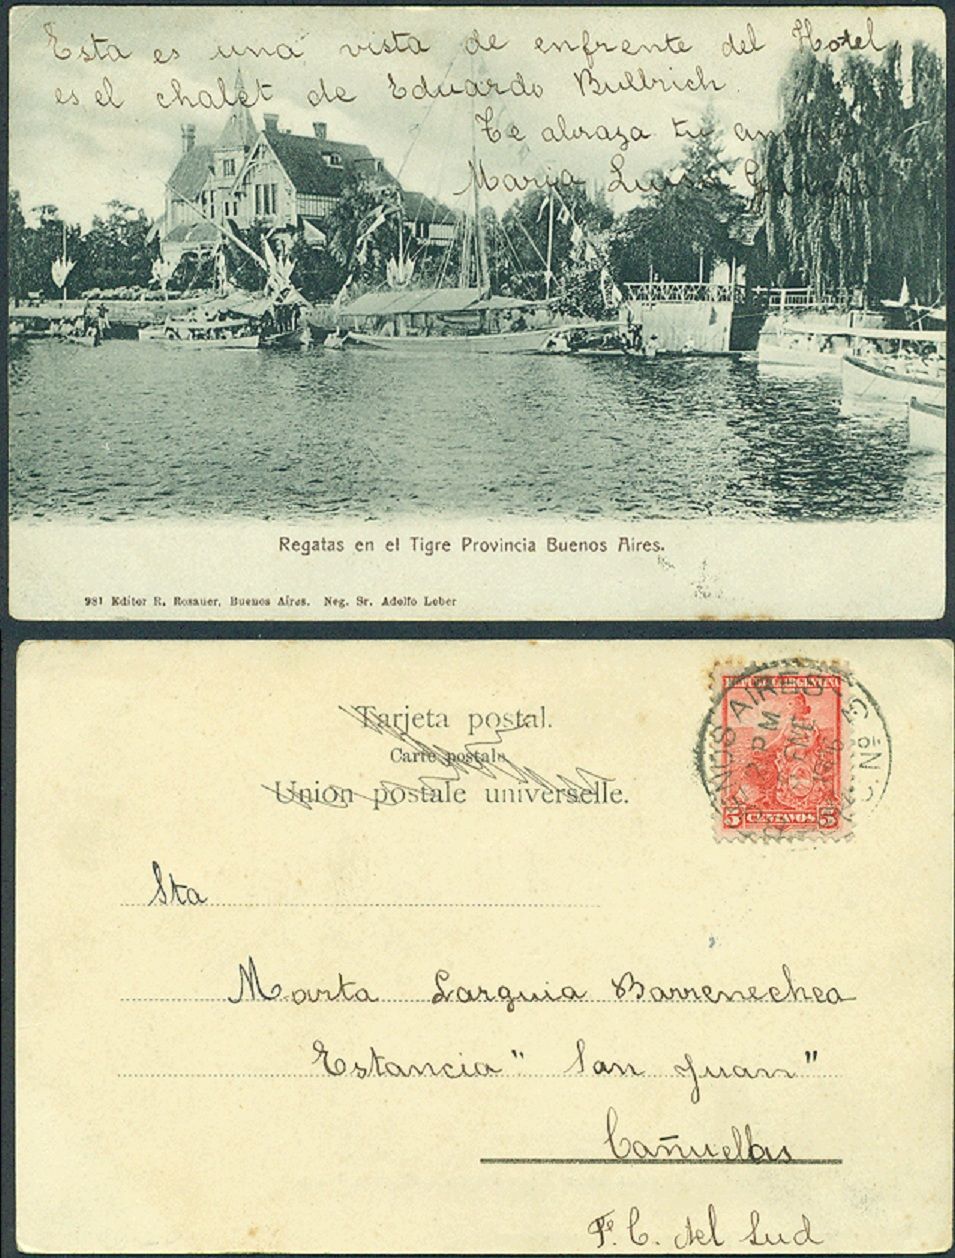 Esta es una vista de enfrente del Hotel
es el chalet de Eduardo Bullrich
Te abraza tu amiga
Maria Luisa
Regatas en el Tigre Provincia Buenos Aires.
981 Editor R. Rosauer, Buenos Aires. Neg. Sr. Adolfo Leber
Tarjeta postal.
Carte postale
Union postale universelle.
REPUBLICA ARGENTINA
5 CENTAVOS 5
2 PM
ENE
Sta
Marta Larguia Barrenechea
Estancia " San Juan "
Cañuellas
F. C. del Sud